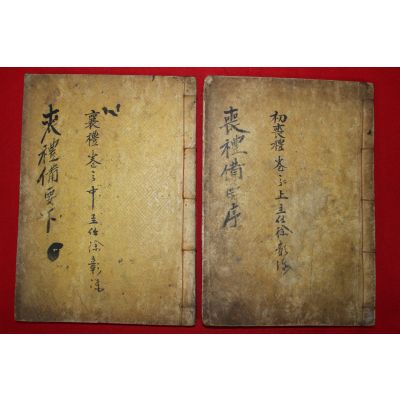 喪禮備要序
初喪禮卷之上主任徐彰洙
喪禮備要下
襄禮卷之中主任徐彰洙